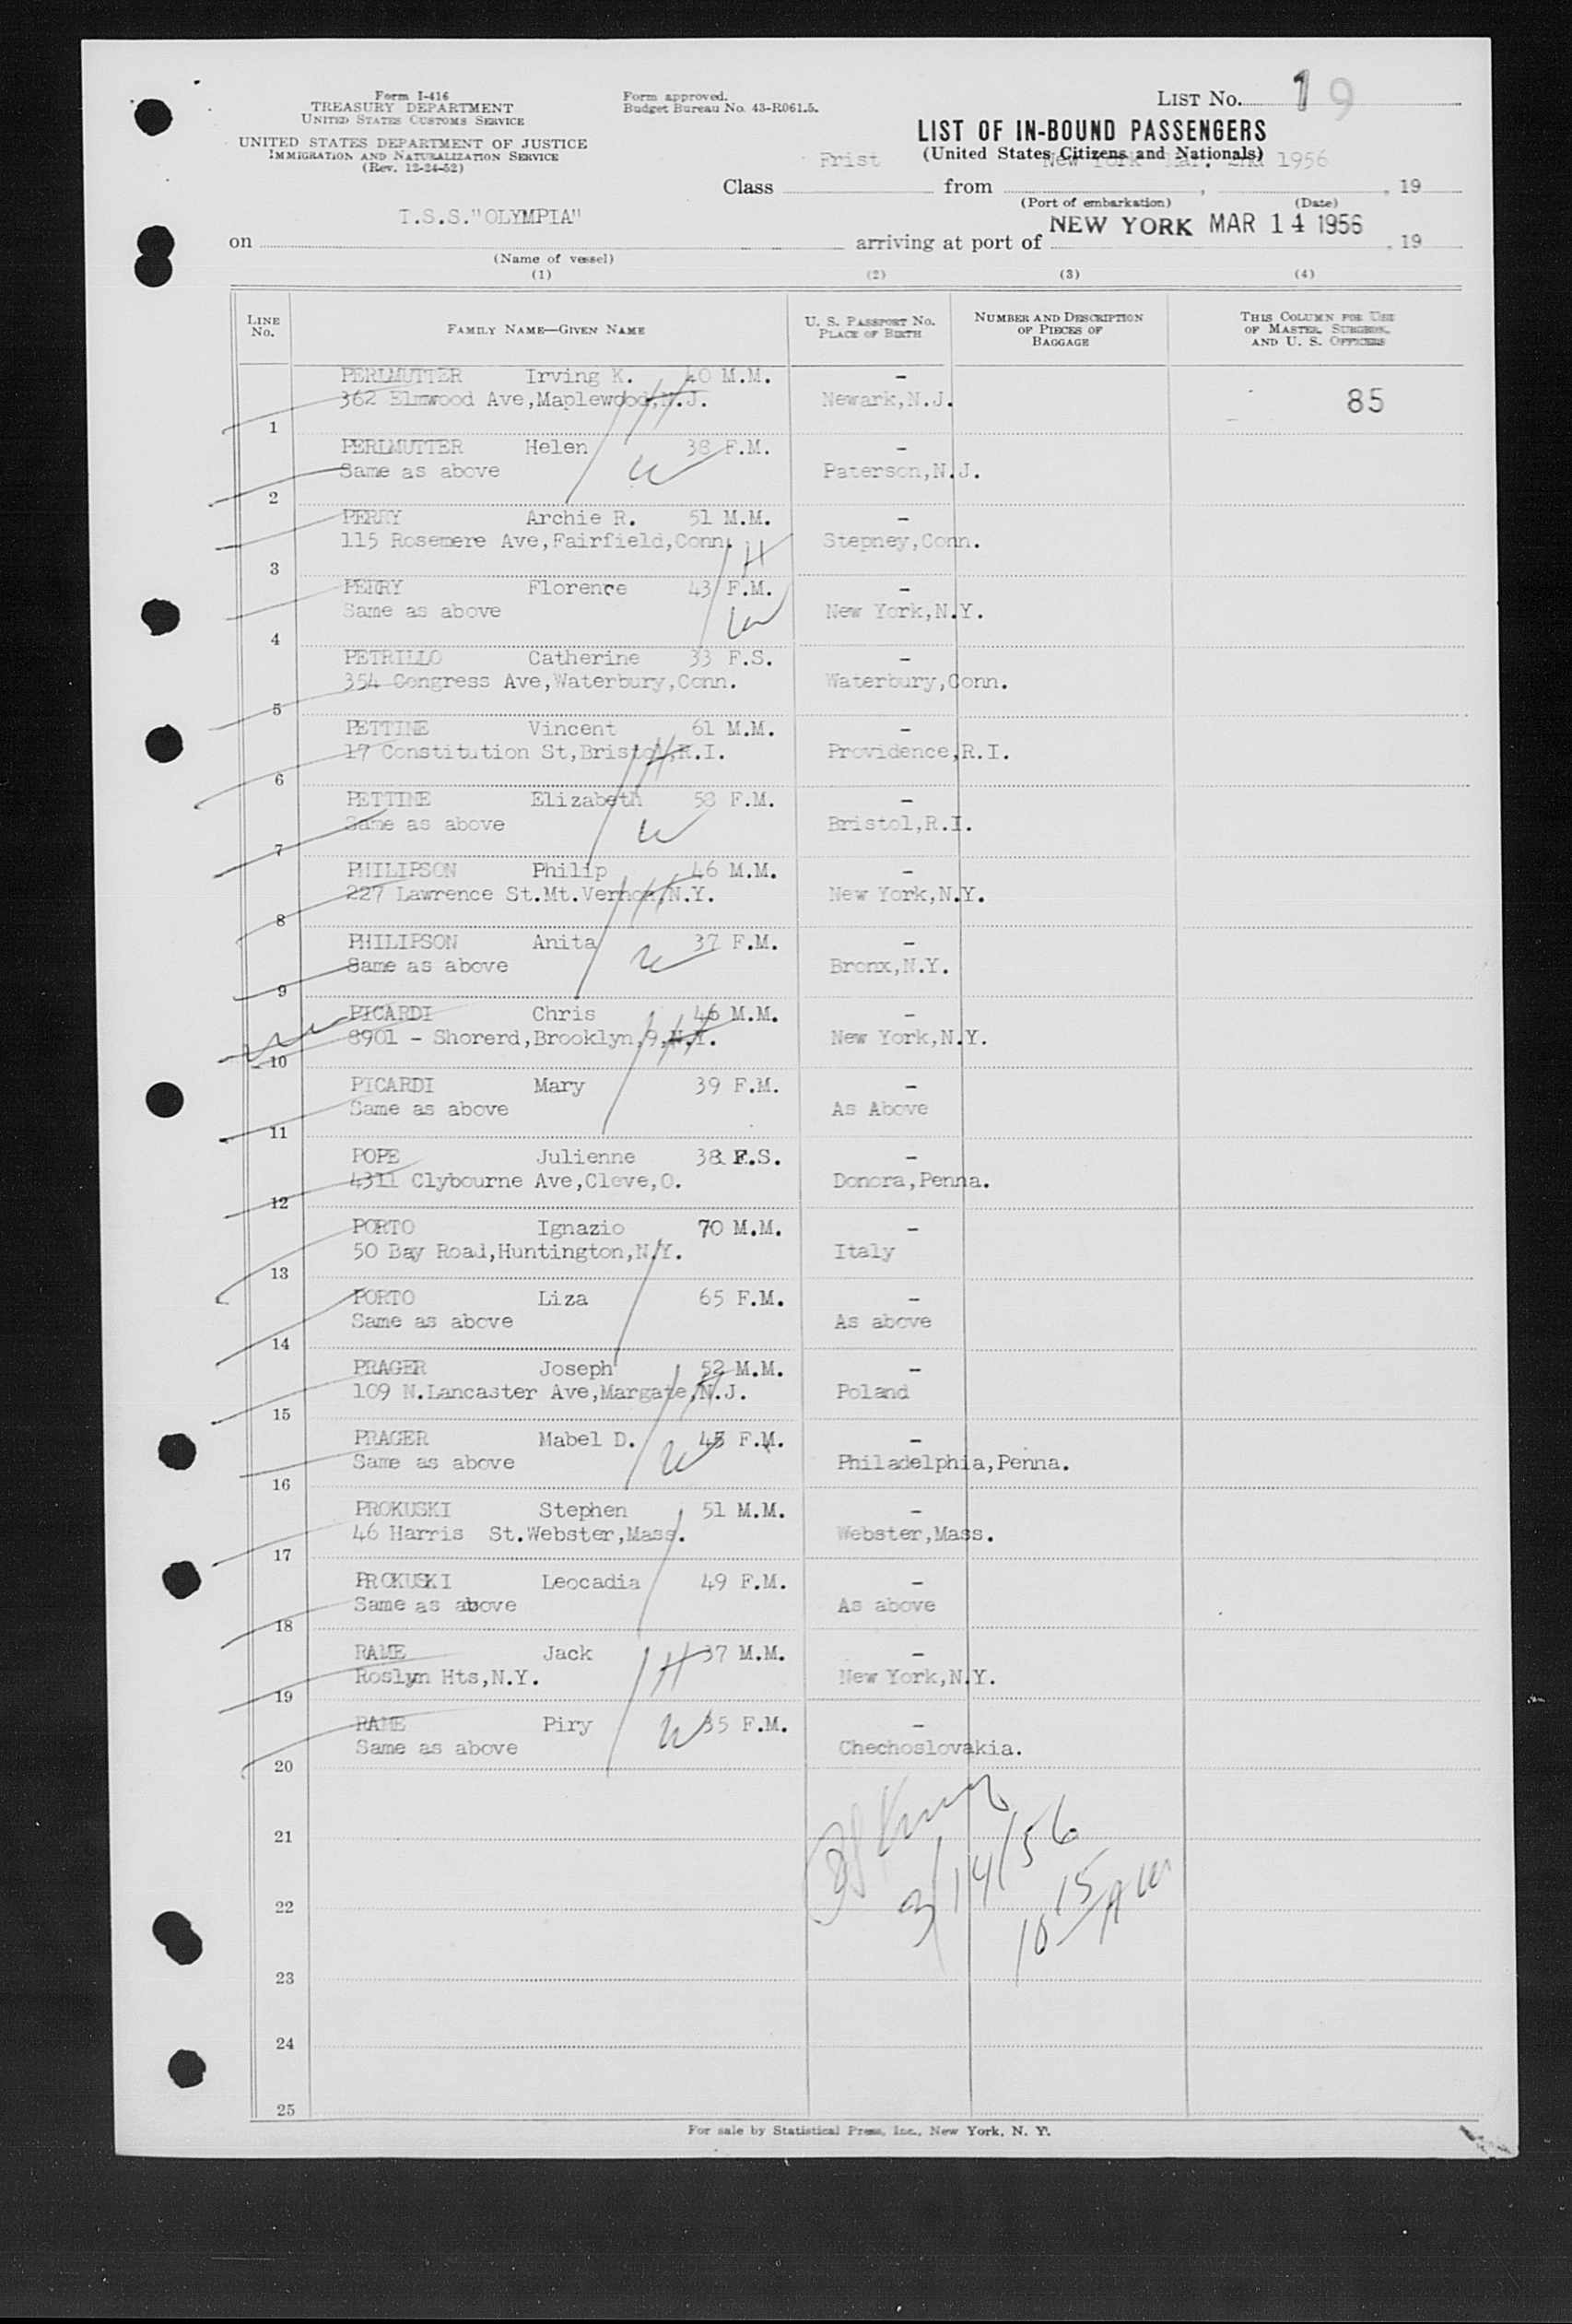 Form I-416
TREASURY DEPARTMENT
UNITED STATES CUSTOMS SERVICE
UNITED STATES DEPARTMENT OF JUSTICE
IMMIGRATION AND NATURALIZATION SERVICE
(Rev. 12-24-52)
Form approved.
Budget Bureau No. 43-R061.5.
LIST No. 19
LIST OF IN-BOUND PASSENGERS
(United States Citizens and Nationals)
Class Frist from New York Mar. 2nd 1956, 19
(Port of embarkation) (Date)
on T.S.S."OLYMPIA" arriving at port of NEW YORK MAR 14 1956, 19
(Name of vessel)
(1) (2) (3) (4)
LINE No. FAMILY NAME—GIVEN NAME U. S. PASSPORT No. PLACE OF BIRTH NUMBER AND DESCRIPTION OF PIECES OF BAGGAGE THIS COLUMN FOR USE OF MASTER, SURGEON, AND U. S. OFFICERS
PERLMUTTER Irving K. 40 M.M. -
362 Elmwood Ave,Maplewood,N.J. Newark,N.J. 85
1
PERLMUTTER Helen 38 F.M. -
Same as above Paterson,N.J.
2
PERRY Archie R. 51 M.M. -
115 Rosemere Ave,Fairfield,Conn. Stepney,Conn.
3
PERRY Florence 43 F.M. -
Same as above New York,N.Y.
4
PETRILLO Catherine 33 F.S. -
354 Congress Ave,Waterbury,Conn. Waterbury,Conn.
5
PETTINE Vincent 61 M.M. -
17 Constitution St,Bristol,R.I. Providence,R.I.
6
PETTINE Elizabeth 58 F.M. -
Same as above Bristol,R.I.
7
PHILIPSON Philip 46 M.M. -
227 Lawrence St.Mt.Vernon,N.Y. New York,N.Y.
8
PHILIPSON Anita 37 F.M. -
Same as above Bronx,N.Y.
9
PICARDI Chris 46 M.M. -
8901 - Shorerd,Brooklyn,9,N.Y. New York,N.Y.
10
PICARDI Mary 39 F.M. -
Same as above As Above
11
POPE Julienne 38 F.S. -
4311 Clybourne Ave,Cleve,O. Donora,Penna.
12
PORTO Ignazio 70 M.M. -
50 Bay Road,Huntington,N.Y. Italy
13
PORTO Liza 65 F.M. -
Same as above As above
14
PRAGER Joseph 52 M.M. -
109 N.Lancaster Ave,Margate,N.J. Poland
15
PRAGER Mabel D. F.M. -
Same as above Philadelphia,Penna.
16
PROKUSKI Stephen 51 M.M. -
46 Harris St.Webster,Mass. Webster,Mass.
17
PROKUSKI Leocadia 49 F.M. -
Same as above As above
18
RAME Jack 37 M.M. -
Roslyn Hts,N.Y. New York,N.Y.
19
RAME Piry 35 F.M. -
Same as above Chechoslovakia.
20
21
3/14/56
22
10 15 AM
23
24
25
For sale by Statistical Press, Inc., New York, N. Y.